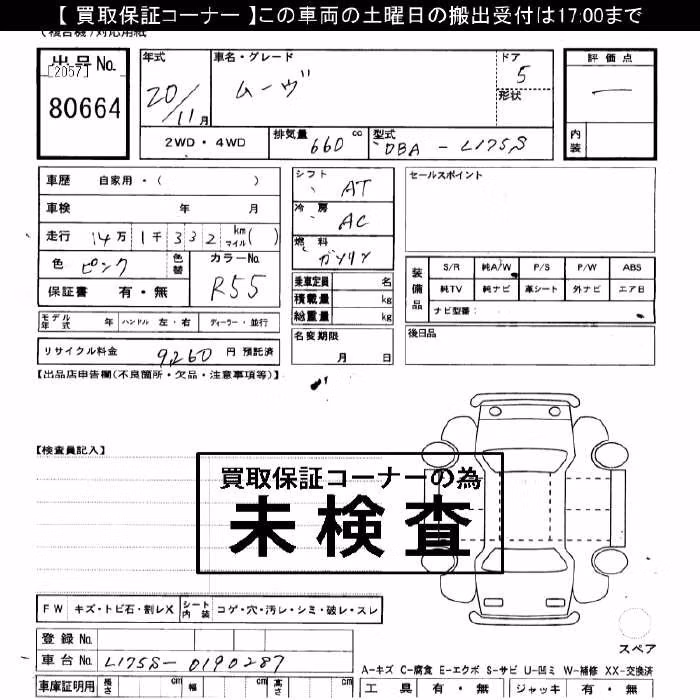 【 買取保証コーナー 】この車両の土曜日の搬出受付は17:00まで
(複合機)対応用紙
出品No.
[2057]
80664
年式
20/11月
車名・グレード
ムーヴ
ドア
5
形状
評価点
―
内装
2WD・4WD
排気量
660 cc
型式
DBA - L175S
車歴 自家用・( )
車検 年 月
走行 14万 1千 332 km マイル( )
色 ピンク
色替
カラーNo.
R55
保証書 有・無
シフト
AT
冷房
AC
燃料
ガソリン
乗車定員 名
積載量 kg
総重量 kg
セールスポイント
装備品
S/R 純A/W P/S P/W ABS
純TV 純ナビ 革シート 外ナビ エア日
ナビ型番:
モデル年式 年 ハンドル 左・右 ディーラー・並行
名変期限
月 日
後日品
リサイクル料金 9,260 円 預託済
【出品店申告欄(不良箇所・欠品・注意事項等)】
【検査員記入】
買取保証コーナーの為
未検査
FW キズ・トビ石・割レX
シート内装 コゲ・穴・汚レ・シミ・破レ・スレ
登録No.
車台No. L175S-0190287
スペア
A-キズ C-腐食 E-エクボ S-サビ U-凹ミ W-補修 XX-交換済
車庫証明用 長さ cm 幅 cm 高さ cm
工具 有・無 ジャッキ 有・無